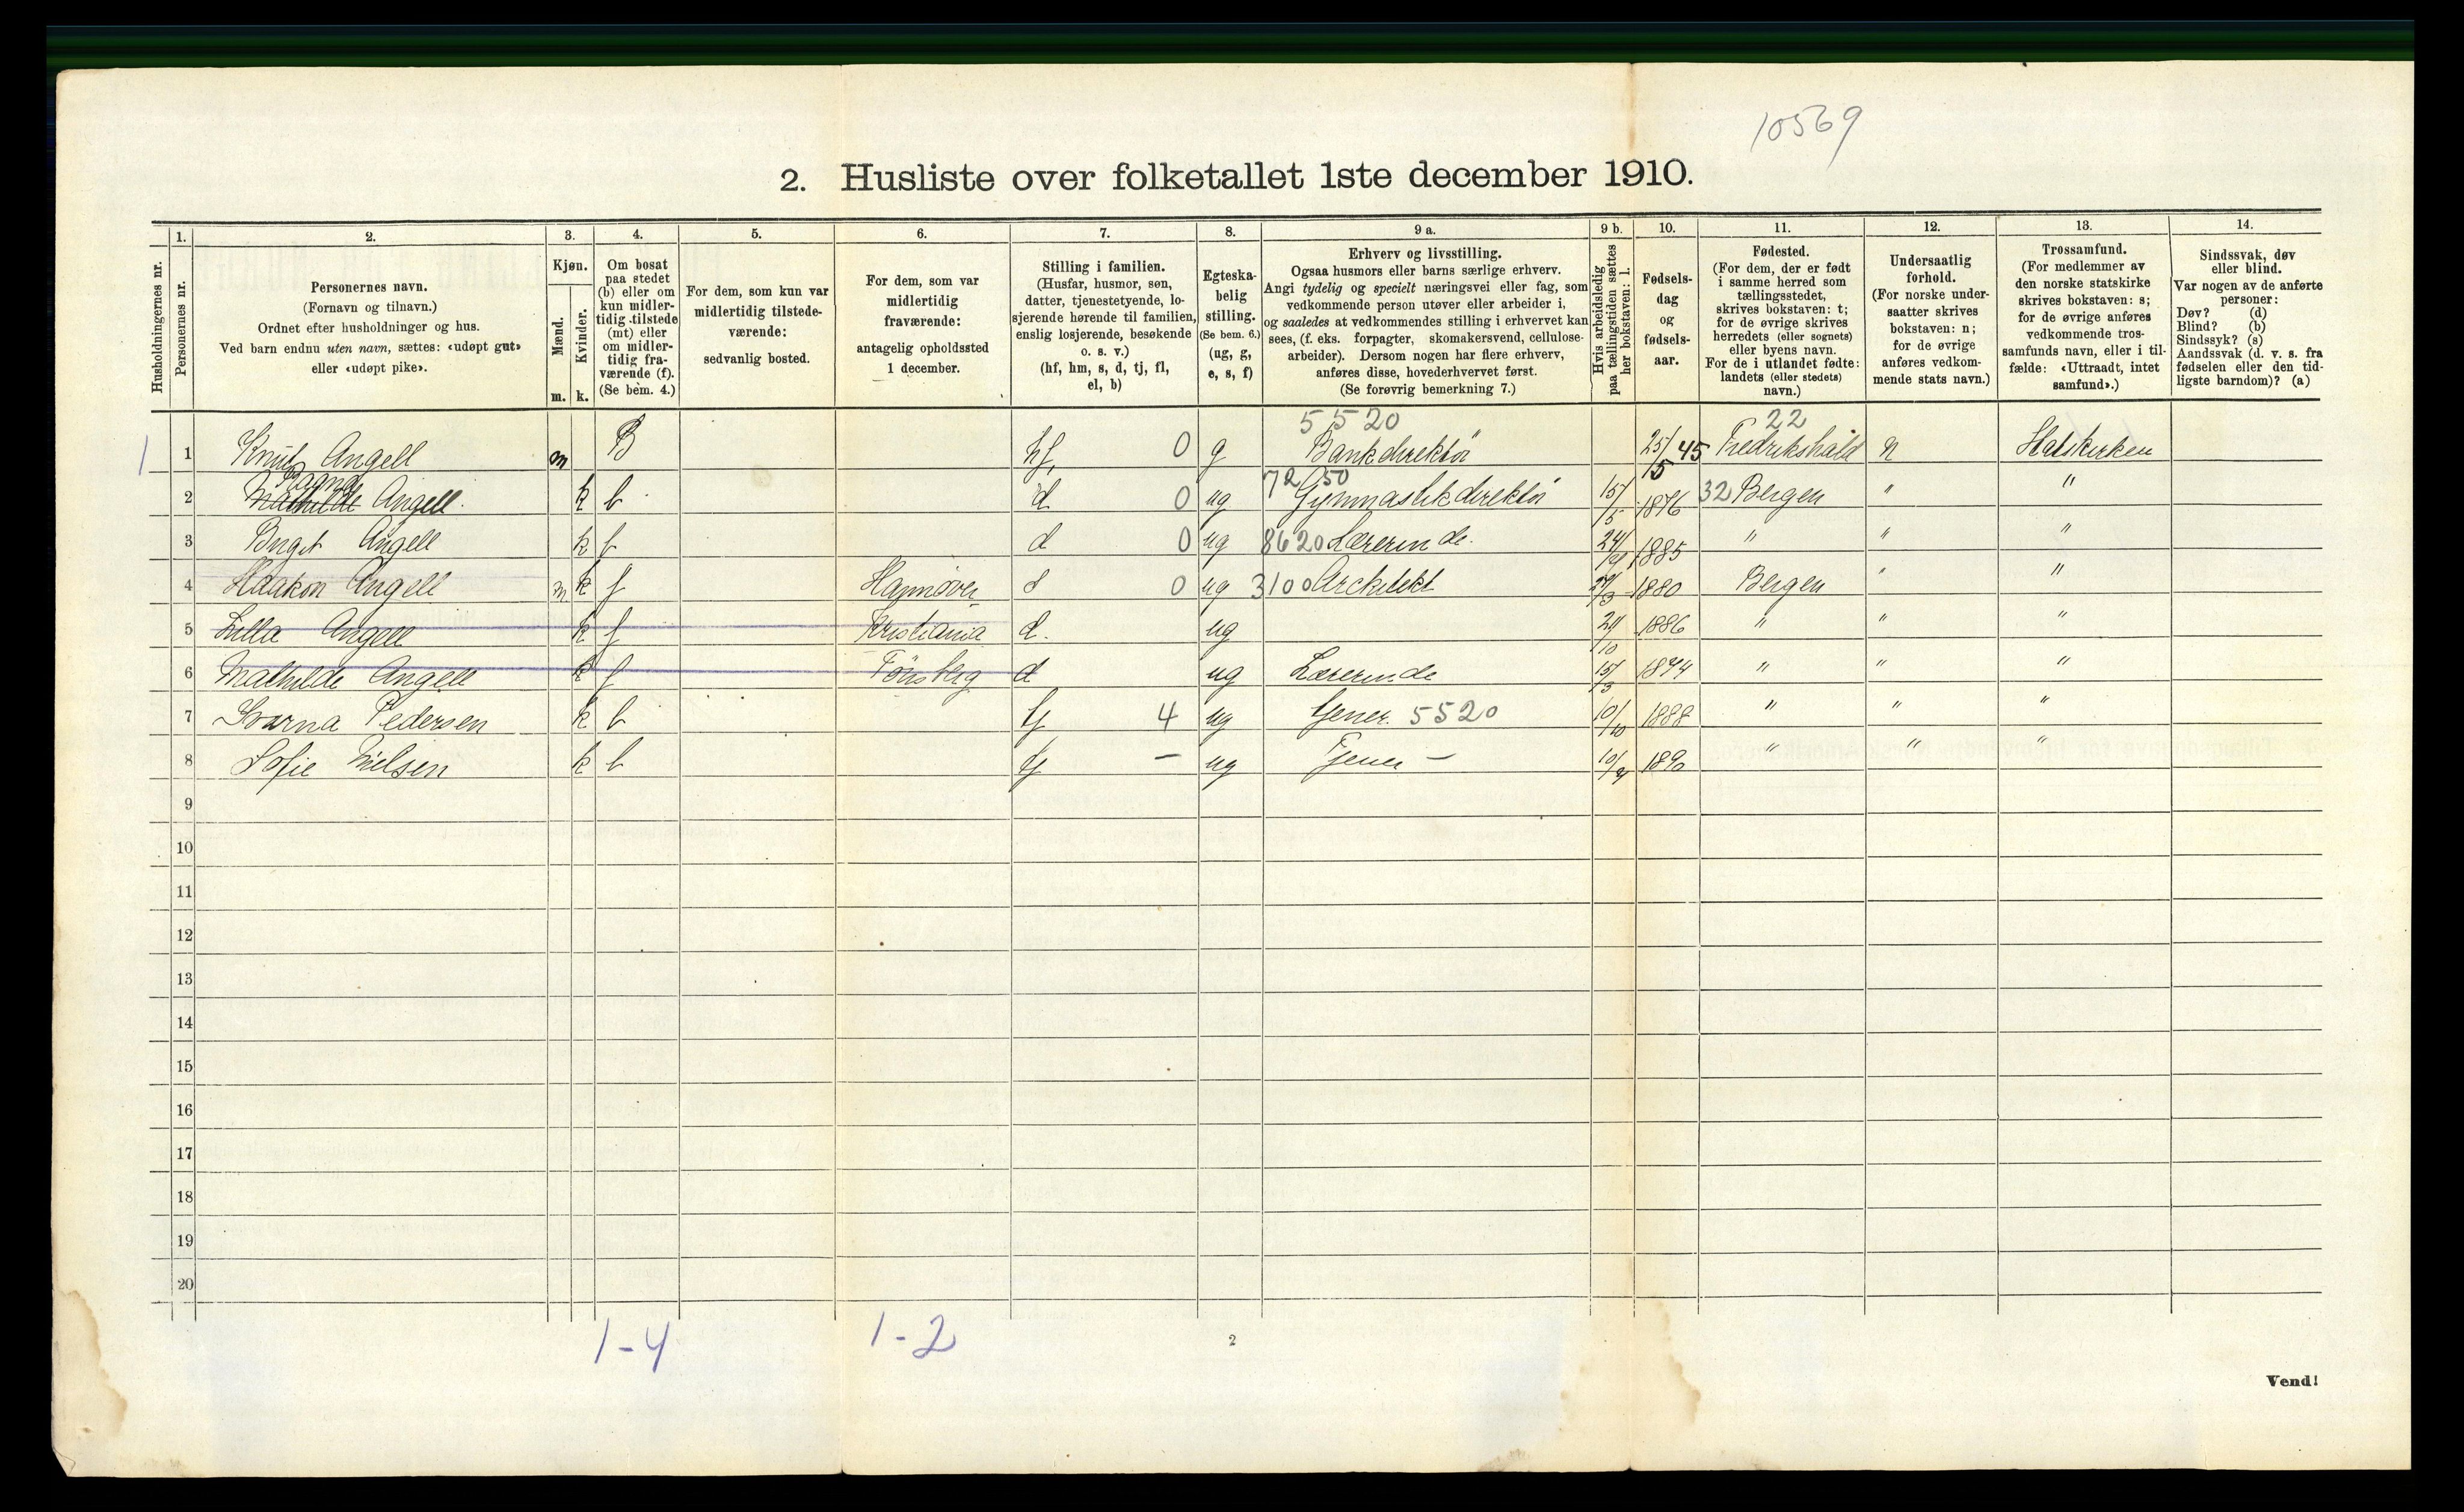 10569
2. Husliste over folketallet 1ste december 1910.
Husholdningernes nr.
1. Personernes nr.
2. Personernes navn.
(Fornavn og tilnavn.)
Ordnet efter husholdninger og hus.
Ved barn endnu uten navn, sættes: «udøpt gut»
eller «udøpt pike».
3. Kjøn.
Mænd. Kvinder.
m. k.
4. Om bosat
paa stedet
(b) eller om
kun midler-
tidig tilstede
(mt) eller
om midler-
tidig fra-
værende (f).
(Se bem. 4.)
5. For dem, som kun var
midlertidig tilstede-
værende:
sedvanlig bosted.
6. For dem, som var
midlertidig
fraværende:
antagelig opholdssted
1 december.
7. Stilling i familien.
(Husfar, husmor, søn,
datter, tjenestetyende, lo-
sjerende hørende til familien,
enslig losjerende, besøkende
o. s. v.)
(hf, hm, s, d, tj, fl,
el, b)
8. Egteska-
belig
stilling.
(Se bem. 6.)
(ug, g,
e, s, f)
9 a. Erhverv og livsstilling.
Ogsaa husmors eller barns særlige erhverv.
Angi tydelig og specielt næringsvei eller fag, som
vedkommende person utøver eller arbeider i,
og saaledes at vedkommendes stilling i erhvervet kan
sees, (f. eks. forpagter, skomakersvend, cellulose-
arbeider). Dersom nogen har flere erhverv,
anføres disse, hovederhvervet først.
(Se forøvrig bemerkning 7.)
9 b. Hvis arbeidsledig
paa tællingstiden sættes
her bokstaven: l.
10. Fødsels-
dag
og
fødsels-
aar.
11. Fødested.
(For dem, der er født
i samme herred som
tællingsstedet,
skrives bokstaven: t;
for de øvrige skrives
herredets (eller sognets)
eller byens navn.
For de i utlandet fødte:
landets (eller stedets)
navn.)
12. Undersaatlig
forhold.
(For norske under-
saatter skrives
bokstaven: n;
for de øvrige
anføres vedkom-
mende stats navn.)
13. Trossamfund.
(For medlemmer av
den norske statskirke
skrives bokstaven: s;
for de øvrige anføres
vedkommende tros-
samfunds navn, eller i til-
fælde: «Uttraadt, intet
samfund».)
14. Sindssvak, døv
eller blind.
Var nogen av de anførte
personer:
Døv? (d)
Blind? (b)
Sindssyk? (s)
Aandssvak (d. v. s. fra
fødselen eller den tid-
ligste barndom)? (a)
5520 22
1 1 Knut Angell m B hf, 0 g Bankdirektør 25/5 45 Fredrikshald n Statskirken
7250
2 Mathilde Angell k b d 0 ug Gymnastikdirektør 15/5 1876 32 Bergen " "
3 Birgit Angell k f d 0 ug 8620 Lærerinde. 24/9 1885 " " "
4 Haakon Angell m k f Hannover 0 ug 3100 Arckitekt 1880 Bergen " "
5 Lilla Angell k f Kristiania d. ug 24/10 1886 " " "
6 Mathilde Angell k f Tønsberg d ug Lærerinde 15/3 1874 " " "
7 Pedersen k b tj 4 ug tjener. 5520 10/10 1888 " " "
8 Sofie Nielsen k b tj – ug Tjener – 10/9 1890 " " "
9
10
11
12
13
14
15
16
17
18
19
20
1-4 1-2
2
Vend!